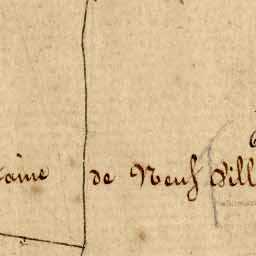 aine de Neuf Vill